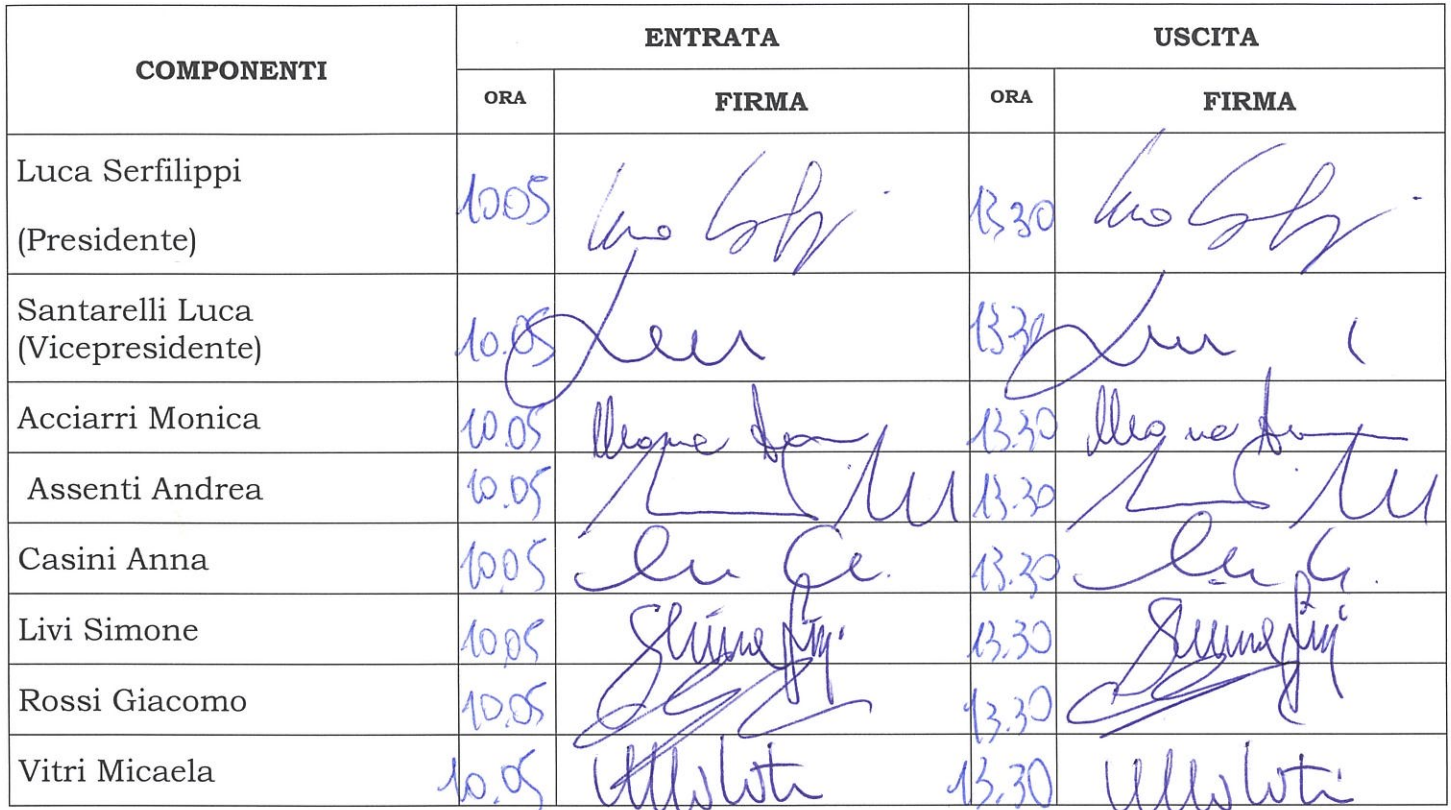 COMPONENTI
ENTRATA
USCITA
ORA
FIRMA
ORA
FIRMA
Luca Serfilippi
(Presidente)
1005
13.30
Santarelli Luca
(Vicepresidente)
10.05
13.30
Acciarri Monica
10.05
13.30
Assenti Andrea
10.05
13.30
Casini Anna
1005
13.30
Livi Simone
10.05
Simone Livi
13.30
Simone Livi
Rossi Giacomo
10.05
13.30
Vitri Micaela
10.05
13.30